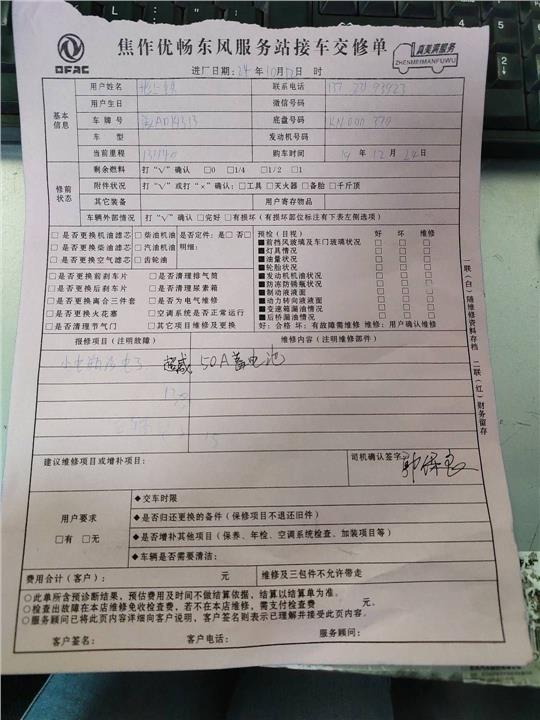 DFAC
焦作优畅东风服务站接车交修单
真美满服务
ZHENMEIMANFUWU
进厂日期：24年10月 日 时
基本信息
用户姓名
联系电话
用户生日
微信号码
车牌号
底盘号码
车型
发动机号码
当前里程
购车时间 19年12月24日
修前状态
剩余燃料 打“√”确认 □0 □1/4 □1/2 □1
附件状况 打“√”或打“×”确认：□工具 □灭火器 □备胎 □千斤顶
其它装备
用户寄存物品
车辆外部情况 打“√”确认 □完好 □有损坏（有损坏部位标注有下表左侧选项）
□是否更换机油滤芯 □柴油机油 是否定件：是□否□
□是否更换柴油滤芯 □汽油机油 明细：
□是否更换空气滤芯 □齿轮油
□是否更换前刹车片 □是否清理排气筒
□是否更换后刹车片 □是否清理尿素箱
□是否更换离合三件套 □是否为电气维修
□是否更换火花塞 □空调系统是否正常运行
□是否清理节气门 □其它项目维修及更换
预检（目视） 好 坏 维修
■前挡风玻璃及车门玻璃状况 □ □ □
■灯具情况 □ □ □
■油量状况 □ □ □
■轮胎状况 □ □ □
■发动机机油状况 □ □ □
■防冻防锈瓶状况 □ □ □
■制动液液面 □ □ □
■动力转向液液面 □ □ □
■变速箱漏油情况 □ □ □
■后桥漏油情况 □ □ □
好：合格 坏：有故障需维修 维修：用户确认维修
报修项目（注明故障）
维修内容（注明维修部件）
超威 50A蓄电池
建议维修项目或增补项目：
司机确认签字：
用户要求
□有 □无
◆交车时限
◆是否归还更换的备件（保修项目不退还旧件）
◆是否增补其他项目（保养、年检、空调系统检查、加装项目等）
◆车辆是否需要清洁：
费用合计（客户）： 元
维修及三包件不允许带走
○此单所含预诊断结果，预估费用及时间不做结算依据，结算以结算单为准。
○检查出故障在本店维修免收检查费，若不在本店维修，需支付检查费 元。
○服务顾问已将此页内容详细向客户说明，客户签名则表示已理解并接受此页内容。
客户签名： 客户电话： 服务顾问：
一联（白）随维修资料存档
二联（红）财务留存